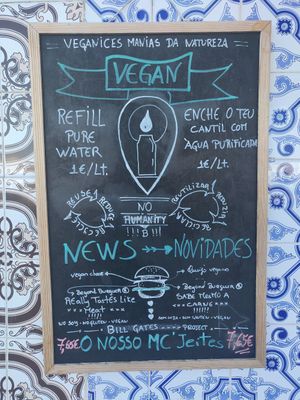 VEGANICES MANIAS DA NATUREZA
VEGAN
REFILL
PURE
WATER
1€/Lt.
ENCHE O TEU
CANTIL COM
AGUA PURIFICADA
1€/Lt.
REUSE
REDUCE
RECYCLE
REUTILIZAR
REDUZIR
RECICLAR
NO
HUMANITY
!!! B !!!
NEWS NOVIDADES
vegan cheese
Queijo vegano
Beyond Burguer
Really Tastes Like
"Meat"
NO SOY - NO GLUTEN - VEGAN
Beyond Burguer
SABE MESMO A
CARNE
BILL GATES PROJECT
7,65€ O NOSSO MC'Jeites 7,65€